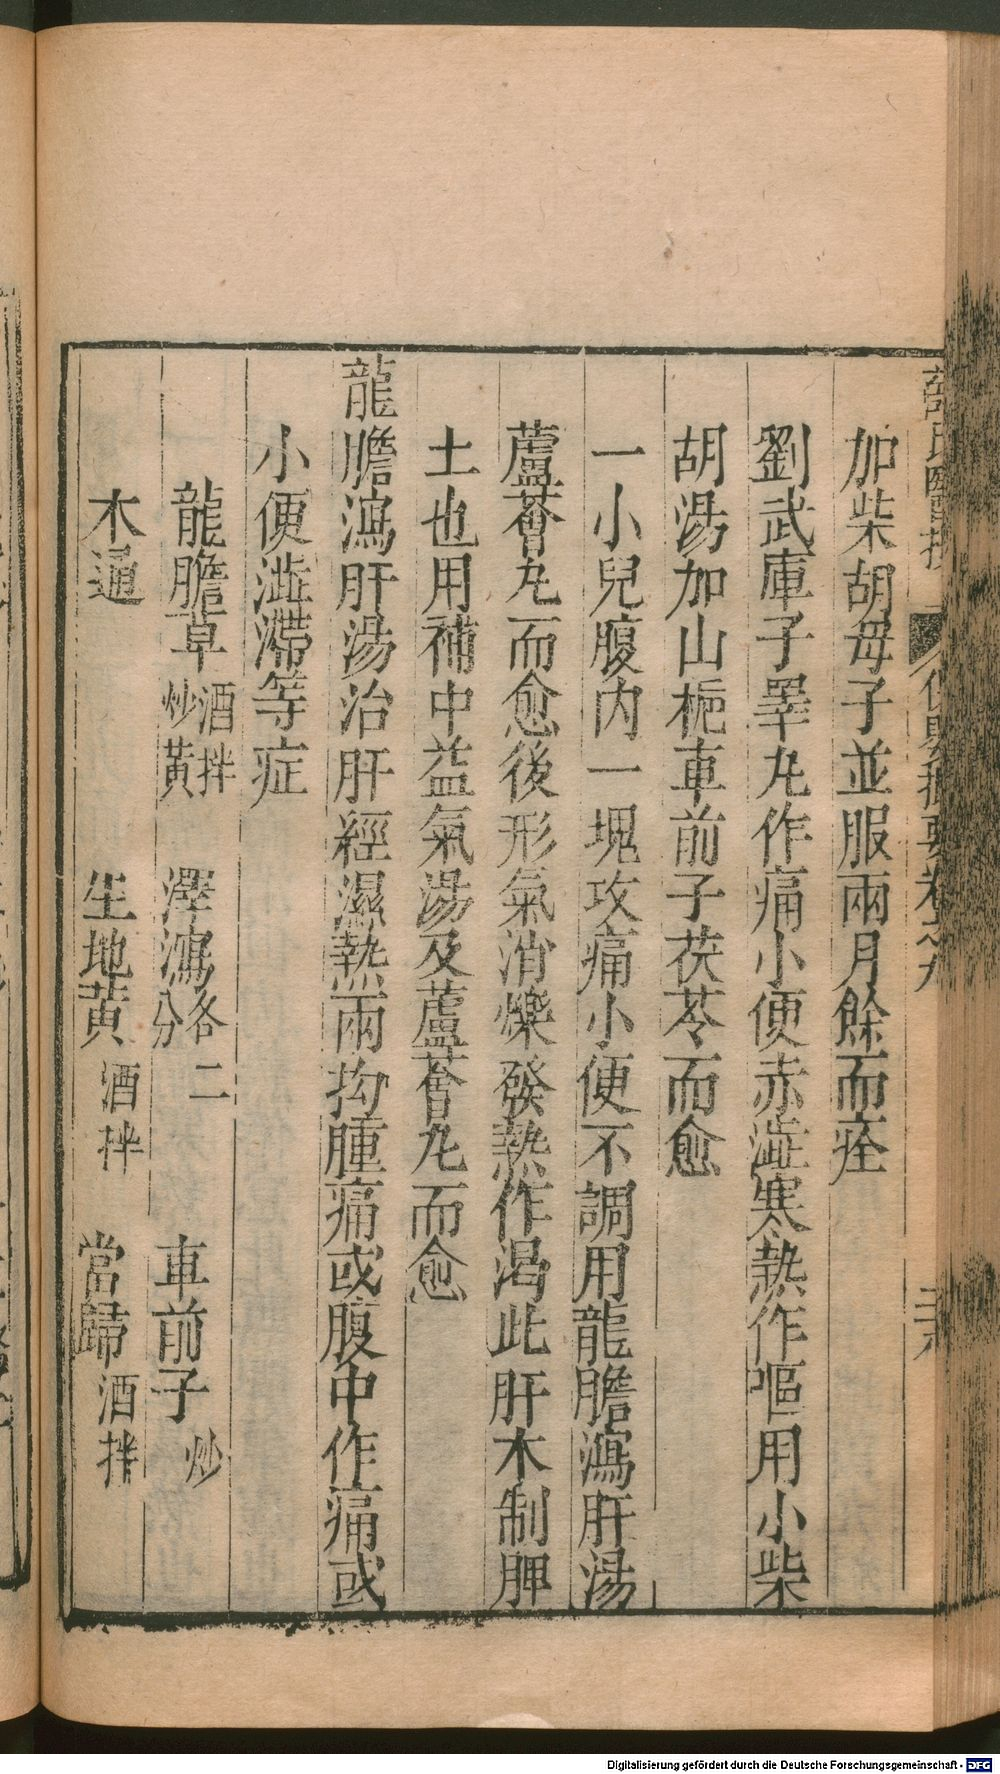 薛氏醫按 保嬰撮要卷之九
加柴胡毋子並服兩月餘而痊
劉武庫子睪丸作痛小便赤澁寒熱作嘔用小柴
胡湯加山梔車前子茯苓而愈
一小兒腹内一塊攻痛小便不調用龍膽瀉肝湯
蘆薈丸而愈後形氣消爍發熱作渴此肝木制脾
土也用補中益氣湯及蘆薈丸而愈
龍膽瀉肝湯治肝經濕熱兩拘腫痛或腹中作痛或
小便澁滯等症
龍膽草酒拌炒黃 澤瀉各二分 車前子炒
木通 生地黃酒拌 當歸酒拌
Digitalisierung gefördert durch die Deutsche Forschungsgemeinschaft - DFG